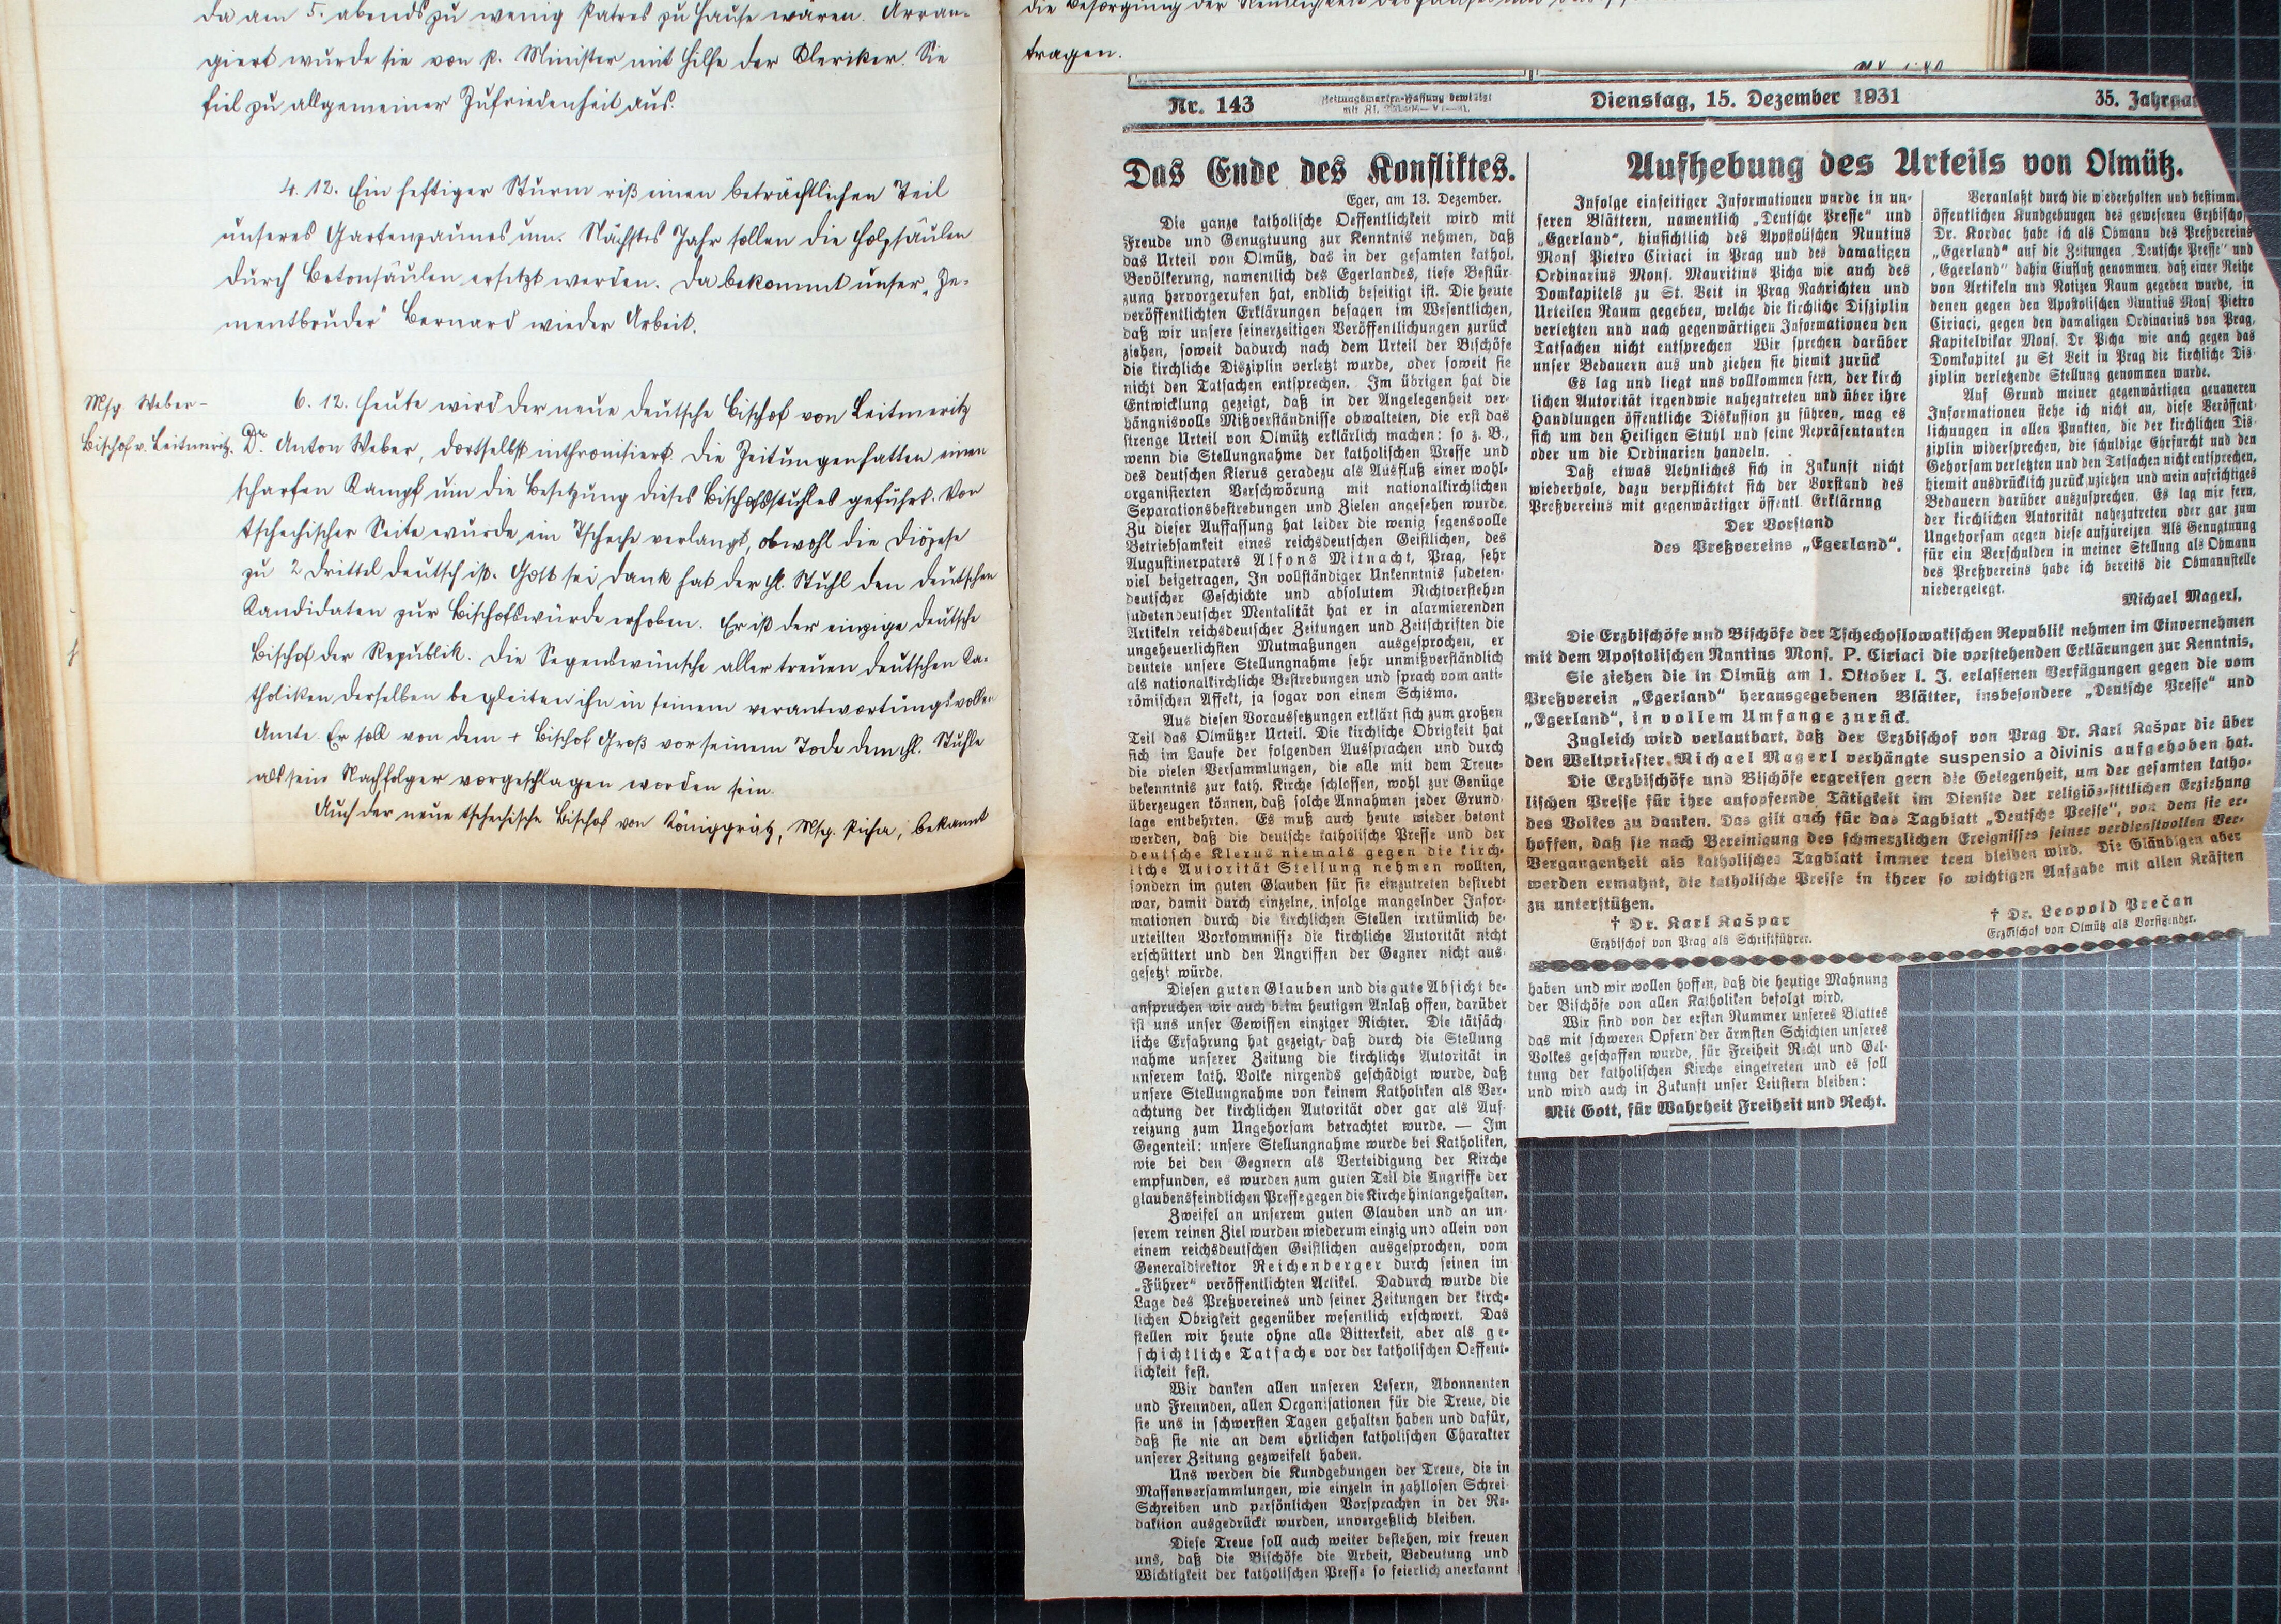 da am 5. abends zu wenig Patres zu Hause waren. Arran-
giert wurde sie von P. Minister mit Hilfe der Kleriker. Sie
fiel zu allgemeiner Zufriedenheit aus.
4. 12. Ein heftiger Sturm riß einen beträchtlichen Teil
unseres Gartenzaunes um. Nächstes Jahr sollen die Holzsäulen
durch Betonsäulen ersetzt werden. Da bekommt unser „Ze-
mentbruder" Bernard wieder Arbeit.
Msg. Weber-
Bischof v. Leitmeritz.
6. 12. Heute wird der neue deutsche Bischof von Leitmeritz
Dr. Anton Weber, dortselbst inthronisiert. Die Zeitungen hatten einen
scharfen Kampf um die Besetzung dieses Bischofsstuhles geführt. Von
tschechischer Seite wurde ein Tscheche verlangt, obwohl die Diözese
zu 2 Drittel deutsch ist. Gott sei Dank hat der hl. Stuhl den deutschen
Kandidaten zur Bischofswürde erhoben. Er ist der einzige deutsche
Bischof der Republik. Die Segenswünsche aller treuen deutschen Ka-
tholiken derselben begleiten ihn in seinem verantwortungsvollen
Amte. Er soll von dem + Bischof Groß vor seinem Tode dem hl. Stuhle
als sein Nachfolger vorgeschlagen worden sein.
Auch der neue tschechische Bischof von Königgrätz, Msg. Picha, bekannt
die Besorgung der Reinlichkeit des Hauses und des
tragen.
Nr. 143
Dienstag, 15. Dezember 1931
35. Jahrgan
Das Ende des Konfliktes.
Eger, am 13. Dezember.
Die ganze katholische Oeffentlichkeit wird mit
Freude und Genugtuung zur Kenntnis nehmen, daß
das Urteil von Olmütz, das in der gesamten kathol.
Bevölkerung, namentlich des Egerlandes, tiefe Bestür-
zung hervorgerufen hat, endlich beseitigt ist. Die heute
veröffentlichten Erklärungen besagen im Wesentlichen,
daß wir unsere seinerzeitigen Veröffentlichungen zurück
ziehen, soweit dadurch nach dem Urteil der Bischöfe
die kirchliche Disziplin verletzt wurde, oder soweit sie
nicht den Tatsachen entsprechen. Im übrigen hat die
Entwicklung gezeigt, daß in der Angelegenheit ver-
hängnisvolle Mißverständnisse obwalteten, die erst das
strenge Urteil von Olmütz erklärlich machen: so z. B.,
wenn die Stellungnahme der katholischen Presse und
des deutschen Klerus geradezu als Ausfluß einer wohl-
organisierten Verschwörung mit nationalkirchlichen
Separationsbestrebungen und Zielen angesehen wurde.
Zu dieser Auffassung hat leider die wenig segensvolle
Betriebsamkeit eines reichsdeutschen Geistlichen, des
Augustinerpaters Alfons Mitnacht, Prag, sehr
viel beigetragen, In vollständiger Unkenntnis sudeten-
deutscher Geschichte und absolutem Nichtverstehen
sudetendeutscher Mentalität hat er in alarmierenden
Artikeln reichsdeutscher Zeitungen und Zeitschriften die
ungeheuerlichsten Mutmaßungen ausgesprochen, er
deutete unsere Stellungnahme sehr unmißverständlich
als nationalkirchliche Bestrebungen und sprach vom anti-
römischen Affekt, ja sogar von einem Schisma.
Aus diesen Voraussetzungen erklärt sich zum großen
Teil das Olmützer Urteil. Die kirchliche Obrigkeit hat
sich im Laufe der folgenden Aussprachen und durch
die vielen Versammlungen, die alle mit dem Treue-
bekenntnis zur kath. Kirche schlossen, wohl zur Genüge
überzeugen können, daß solche Annahmen jeder Grund-
lage entbehrten. Es muß auch heute wieder betont
werden, daß die deutsche katholische Presse und der
deutsche Klerus niemals gegen die kirch-
liche Autorität Stellung nehmen wollten,
sondern im guten Glauben für sie einzutreten bestrebt
war, damit durch einzelne, infolge mangelnder Infor-
mationen durch die kirchlichen Stellen irrtümlich be-
urteilten Vorkommnisse die kirchliche Autorität nicht
erschüttert und den Angriffen der Gegner nicht aus-
gesetzt würde.
Diesen guten Glauben und die gute Absicht be-
anspruchen wir auch beim heutigen Anlaß offen, darüber
ist uns unser Gewissen einziger Richter. Die tatsäch-
liche Erfahrung hat gezeigt, daß durch die Stellung
nahme unserer Zeitung die kirchliche Autorität in
unserem kath. Volke nirgends geschädigt wurde, daß
unsere Stellungnahme von keinem Katholiken als Ver-
achtung der kirchlichen Autorität oder gar als Auf-
reizung zum Ungehorsam betrachtet wurde. — Im
Gegenteil: unsere Stellungnahme wurde bei Katholiken,
wie bei den Gegnern als Verteidigung der Kirche
empfunden, es wurden zum guten Teil die Angriffe der
glaubensfeindlichen Presse gegen die Kirche hintangehalten.
Zweifel an unserem guten Glauben und an un-
serem reinen Ziel wurden wiederum einzig und allein von
einem reichsdeutschen Geistlichen ausgesprochen, vom
Generaldirektor Reichenberger durch seinen im
„Führer" veröffentlichten Artikel. Dadurch wurde die
Lage des Preßvereines und seiner Zeitungen der kirch-
lichen Obrigkeit gegenüber wesentlich erschwert. Das
stellen wir heute ohne alle Bitterkeit, aber als ge-
schichtliche Tatsache vor der katholischen Oeffent-
lichkeit fest.
Wir danken allen unseren Lesern, Abonnenten
und Freunden, allen Organisationen für die Treue, die
sie uns in schwersten Tagen gehalten haben und dafür,
daß sie nie an dem ehrlichen katholischen Charakter
unserer Zeitung gezweifelt haben.
Uns werden die Kundgebungen der Treue, die in
Massenversammlungen, wie einzeln in zahllosen Schrei-
Schreiben und persönlichen Vorsprachen in der Re-
daktion ausgedrückt wurden, unvergeßlich bleiben.
Diese Treue soll auch weiter bestehen, wir freuen
uns, daß die Bischöfe die Arbeit, Bedeutung und
Wichtigkeit der katholischen Presse so feierlich anerkannt
Aufhebung des Urteils von Olmütz.
Infolge einseitiger Informationen wurde in un-
seren Blättern, namentlich „Deutsche Presse" und
„Egerland", hinsichtlich des Apostolischen Nuntius
Mons Pietro Ciriaci in Prag und des damaligen
Ordinarius Mons. Mauritius Picha wie auch des
Domkapitels zu St. Veit in Prag Nachrichten und
Urteilen Raum gegeben, welche die kirchliche Disziplin
verletzten und nach gegenwärtigen Informationen den
Tatsachen nicht entsprechen Wir sprechen darüber
unser Bedauern aus und ziehen sie hiemit zurück
Es lag und liegt uns vollkommen fern, der kirch
lichen Autorität irgendwie nahezutreten und über ihre
Handlungen öffentliche Diskussion zu führen, mag es
sich um den Heiligen Stuhl und seine Repräsentanten
oder um die Ordinarien handeln.
Daß etwas Aehnliches sich in Zukunft nicht
wiederhole, dazu verpflichtet sich der Vorstand des
Preßvereins mit gegenwärtiger öffentl Erklärung
Der Vorstand
des Preßvereins „Egerland".
Veranlaßt durch die wiederholten und bestimm
öffentlichen Kundgebungen des gewesenen Erzbischo
Dr. Kordac habe ich als Obmann des Preßvereins
„Egerland" auf die Zeitungen „Deutsche Presse" und
„Egerland" dahin Einfluß genommen, daß einer Reihe
von Artikeln und Notizen Raum gegeben wurde, in
denen gegen den Apostolischen Nuntius Mons Pietro
Ciriaci, gegen den damaligen Ordinarius von Prag,
Kapitelvikar Mons. Dr. Picha wie auch gegen das
Domkapitel zu St Veit in Prag die kirchliche Dis-
ziplin verletzende Stellung genommen wurde.
Auf Grund meiner gegenwärtigen genaueren
Informationen stehe ich nicht an, diese Veröffent-
lichungen in allen Punkten, die der kirchlichen Dis-
ziplin widersprechen, die schuldige Ehrfurcht und den
Gehorsam verletzten und den Tatsachen nicht entsprechen,
hiemit ausdrücklich zurückzuziehen und mein aufrichtiges
Bedauern darüber auszusprechen. Es lag mir fern,
der kirchlichen Autorität nahezutreten oder gar zum
Ungehorsam gegen diese aufzureizen. Als Genugtuung
für ein Verschulden in meiner Stellung als Obmann
des Preßvereins habe ich bereits die Obmannstelle
niedergelegt.
Michael Magerl.
Die Erzbischöfe und Bischöfe der Tschechoslowakischen Republik nehmen im Einvernehmen
mit dem Apostolischen Nuntius Mons. P. Ciriaci die vorstehenden Erklärungen zur Kenntnis,
Sie ziehen die in Olmütz am 1. Oktober l. J. erlassenen Verfügungen gegen die vom
Preßverein „Egerland" herausgegebenen Blätter, insbesondere „Deutsche Presse" und
„Egerland", in vollem Umfange zurück.
Zugleich wird verlautbart, daß der Erzbischof von Prag Dr. Karl Kašpar die über
den Weltpriester Michael Magerl verhängte suspensio a divinis aufgehoben hat.
Die Erzbischöfe und Bischöfe ergreifen gern die Gelegenheit, um der gesamten katho-
lischen Presse für ihre aufopfernde Tätigkeit im Dienste der religiös-sittlichen Erziehung
des Volkes zu danken. Das gilt auch für das Tagblatt „Deutsche Presse", von dem sie er-
hoffen, daß sie nach Bereinigung des schmerzlichen Ereignisses seiner verdienstvollen Ver-
Vergangenheit als katholisches Tagblatt immer treu bleiben wird. Die Gläubigen aber
werden ermahnt, die katholische Presse in ihrer so wichtigen Aufgabe mit allen Kräften
zu unterstützen.
† Dr. Karl Kašpar
Erzbischof von Prag als Schriftführer.
† Dr. Leopold Prečan
Erzbischof von Olmütz als Vorsitzender.
haben und wir wollen hoffen, daß die heutige Mahnung
der Bischöfe von allen Katholiken befolgt wird.
Wir sind von der ersten Nummer unseres Blattes
das mit schweren Opfern der ärmsten Schichten unseres
Volkes geschaffen wurde, für Freiheit Recht und Gel-
tung der katholischen Kirche eingetreten und es soll
und wird auch in Zukunft unser Leitstern bleiben:
Mit Gott, für Wahrheit Freiheit und Recht.